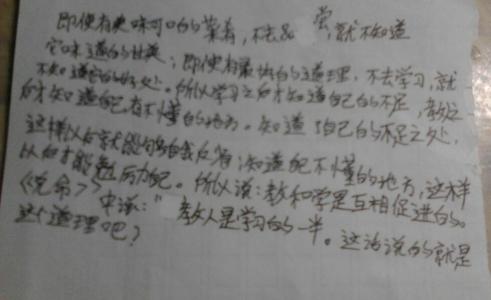 即使有美味可口的菜肴，不去品尝，就不知道
它味道的甘美；即使有最好的道理，不去学习，就
不知道它的好处。所以学习之后才知道自己的不足，教人之
后才知道自己有不懂的地方。知道了自己的不足之处，
这样以后就能够自我反省；知道自己不懂的地方，这样
以后才能勉励自己。所以说：教和学是互相促进的。
《兑命》中说：“教人是学习的一半。这话说的就是
这个道理吧？